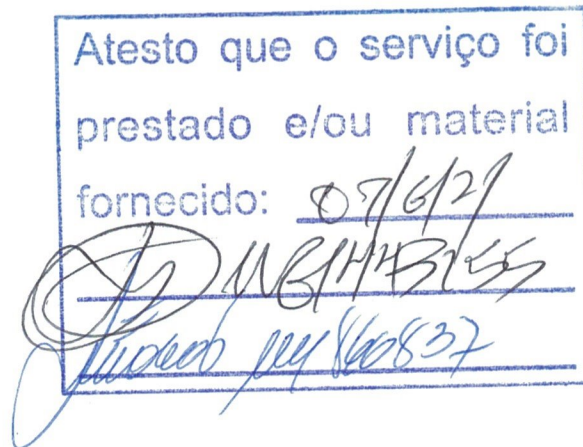 Atesto que o serviço foi
prestado e/ou material
fornecido: 07/6/21
860837